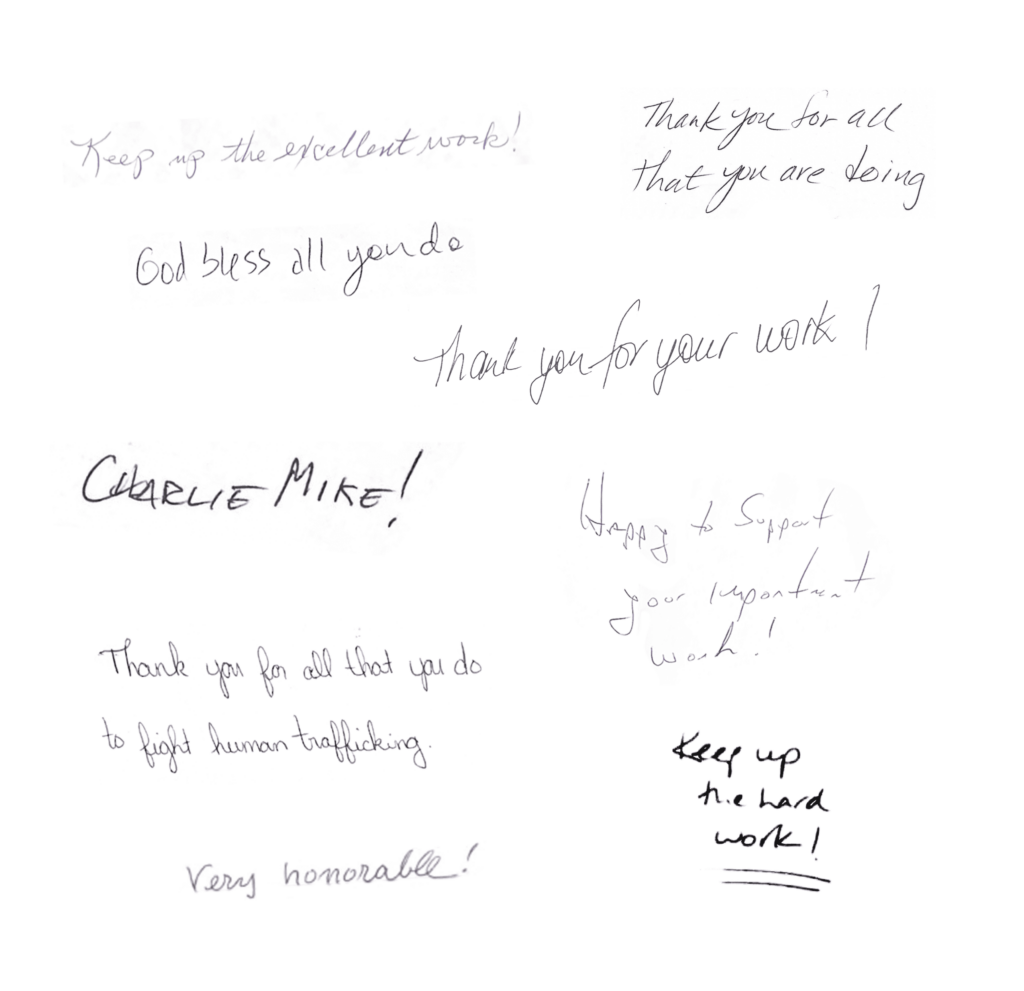 Keep up the excellent work!
Thank you for all
that you are doing
God bless all you do
Thank you for your work!
CHARLIE MIKE!
Happy to Support
your important
work!
Thank you for all that you do
to fight human trafficking.
Keep up
the hard
work!
Very honorable!